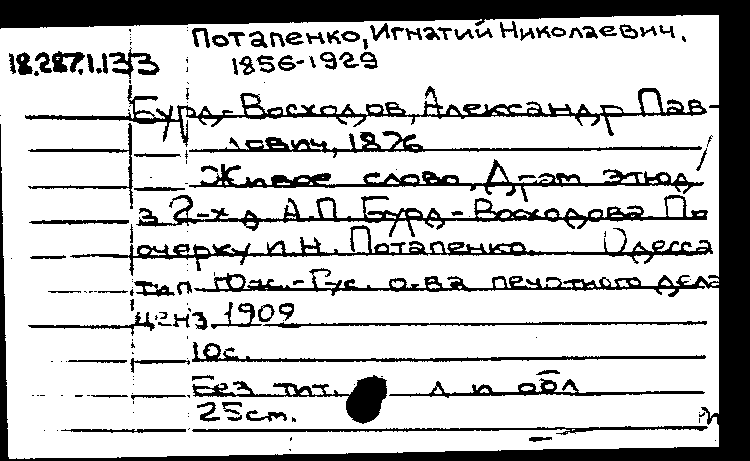 Потапенко, Игнатий Николаевич.
18.287.1.133 1856-1929
Бурд-Восходов, Александр Пав-
лович, 1876
Живое слово, Драт этюд
в 2-х д А.П. Бурд-Восходова По
очерку И.Н. Потапенко. Одесса
тип Юж.-Рус. о-ва печатного дела
ценз. 1909
10с.
Без тит. л и обл
25cm.